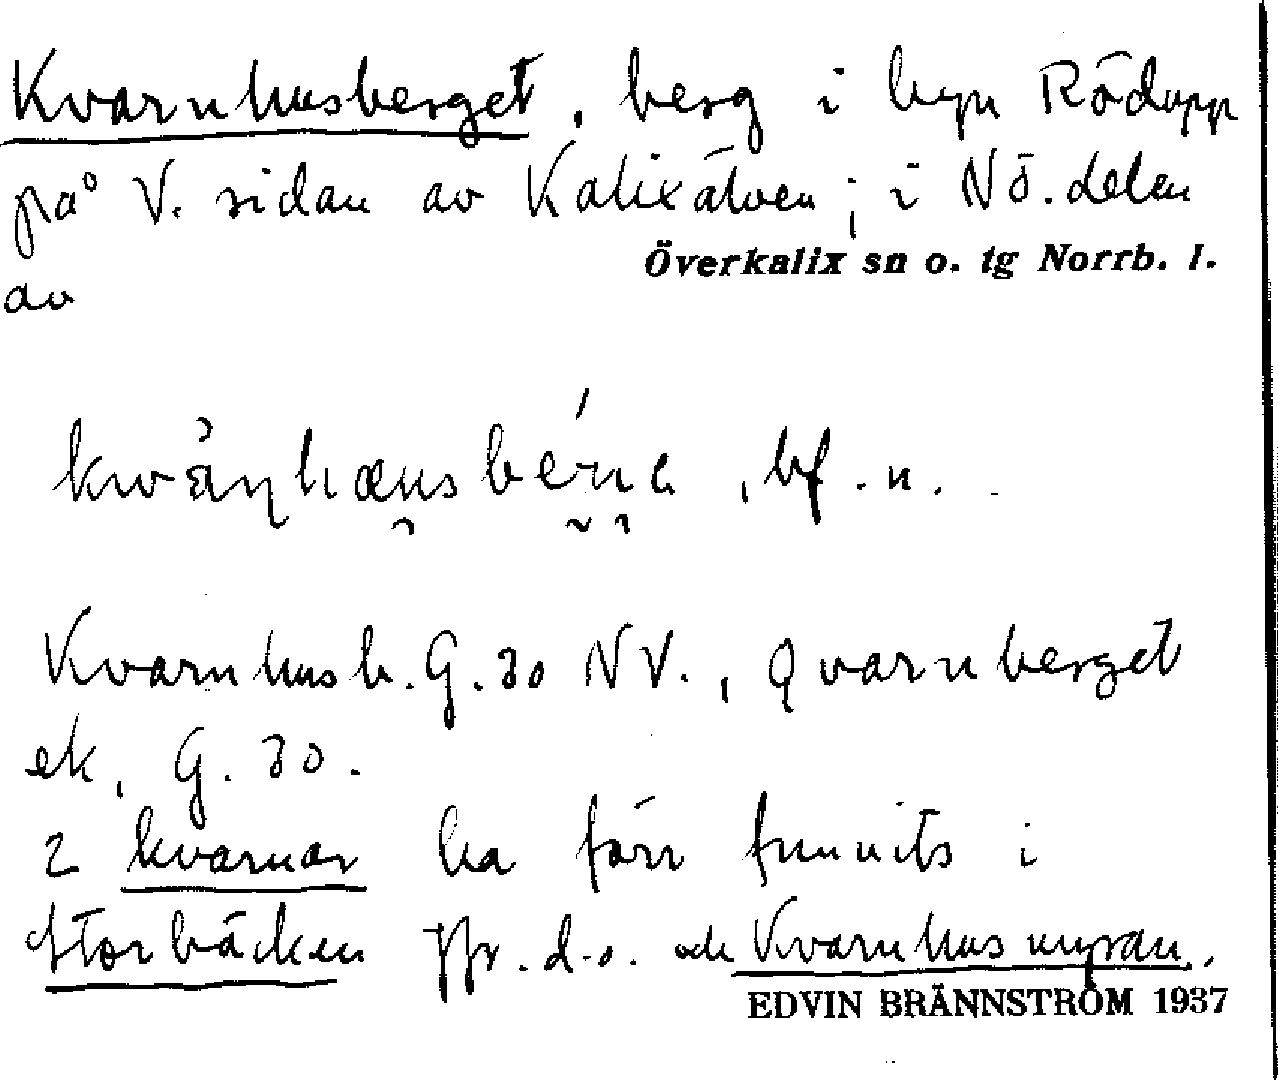 Kvarnhusberget, berg i byn Rödupp
på V. sidan av Kalixälven; i NÖ. delen
Överkalix sn o. tg Norrb. l.
av
bf. n.
Kvarnhusb. G. 30 NV., Qvarnberget
ek, G. 30.
2 kvarnar ha förr funnits i
Storbäcken Jfr. d.o. och Kvarnhusmyran.
EDVIN BRÄNNSTRÖM 1937